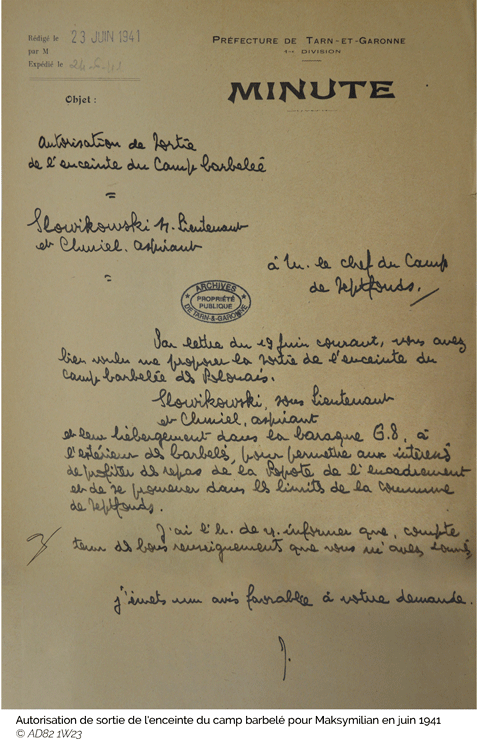 Rédigé le 23 JUIN 1941
par M
Expédié le 24-6-41
PRÉFECTURE DE TARN-ET-GARONNE
1re DIVISION
MINUTE
Objet :
Autorisation de sortie
de l'enceinte du Camp barbelée
Slowikowski s/. Lieutenant
et Chmiel. aspirant
à M. le chef du Camp
de Septfonds.
ARCHIVES
PROPRIÉTÉ
PUBLIQUE
DE TARN-&-GARONNE
Par lettre du 19 Juin courant, vous avez
bien voulu me proposer la sortie de l'enceinte du
Camp barbelée des Polonais.
Slowikowski, sous Lieutenant
et Chmiel, aspirant
et leur hébergement dans la baraque G.8, à
l'extérieur des barbelés, pour permettre aux intéressés
de profiter des repas de la Popote de l'encadrement
et de se promener dans les limites de la commune
de Septfonds.
J'ai l'h. de v. informer que, compte
tenu des bons renseignements que vous m'avez donnés,
j'émets un avis favorable à votre demande.
Autorisation de sortie de l'enceinte du camp barbelé pour Maksymilian en juin 1941
© AD82 1W23